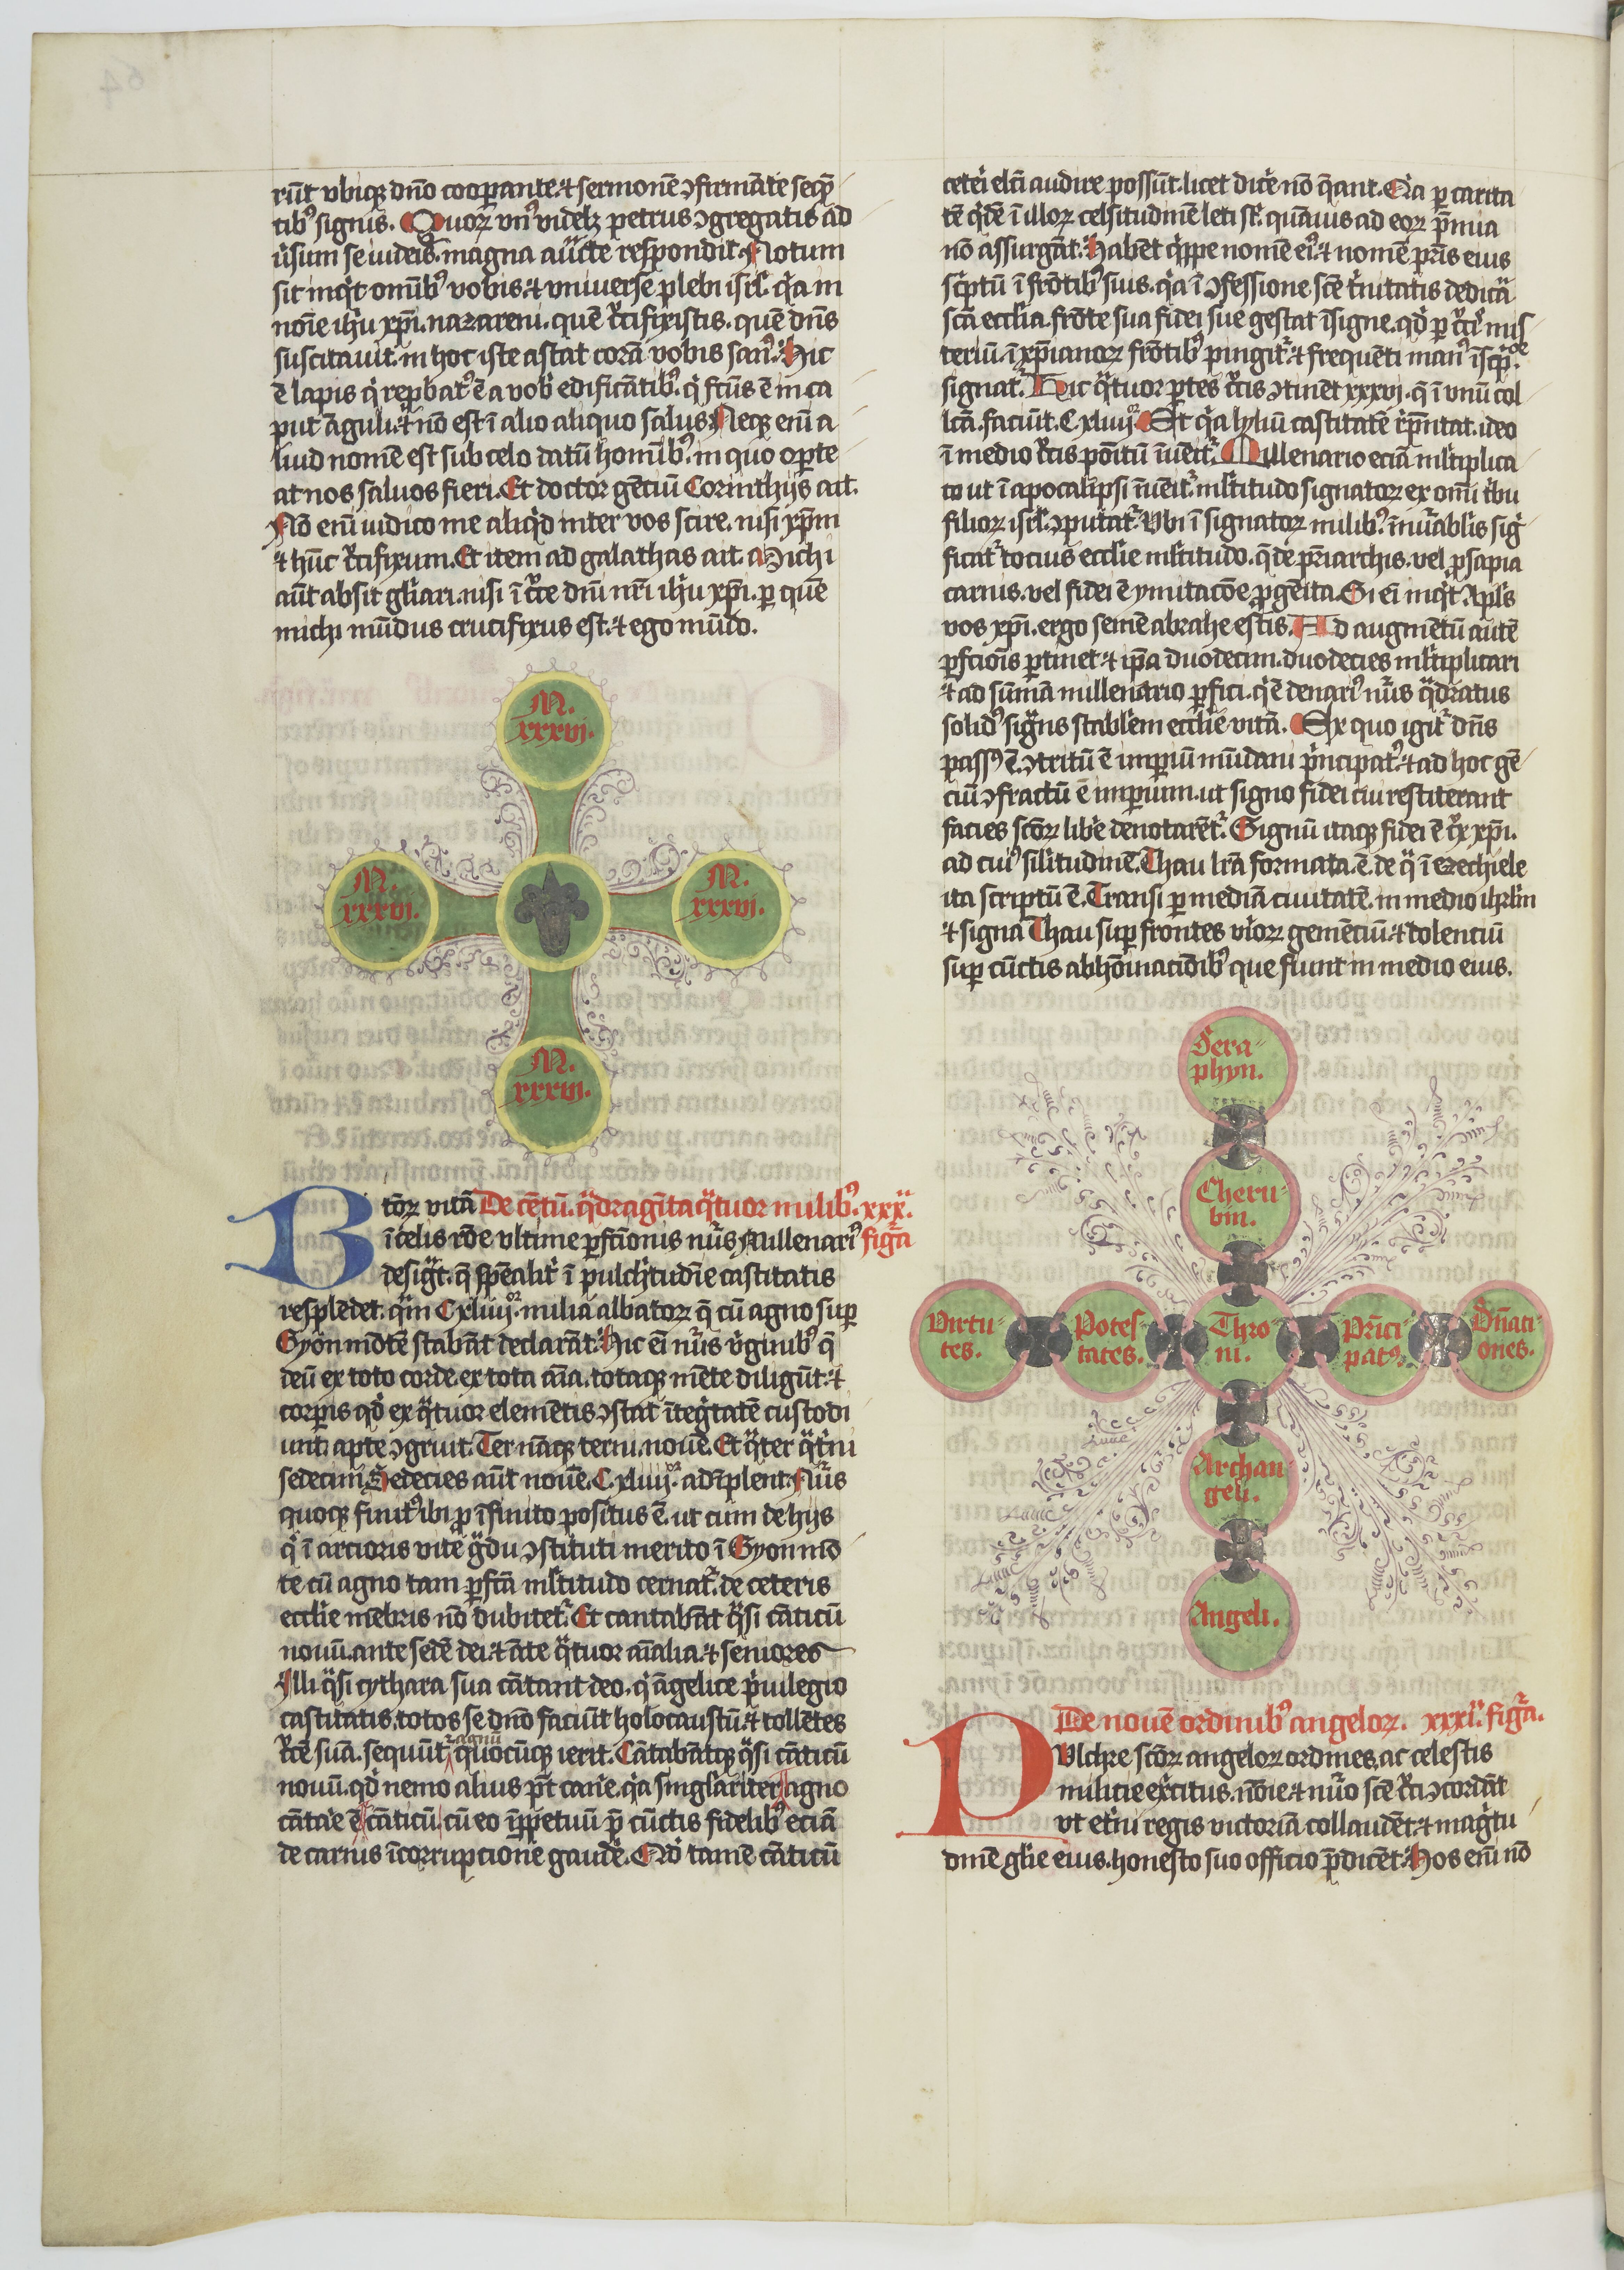 rūt vbiqꝫ dn̄o cooꝑante ⁊ sermonē ꝯfirmāte seq̄ꝑ
tibꝰ signis. Quorꝝ vnꝰ videlꝫ petrus ꝯgregatis ad
magna aūcte respondit. Notum
sit inqͥt omībꝰ vobis ⁊ vniuerse plebi isrl̓. qͥa in
noīe ihū xp̄i. nazareni. quē cͣcifixistis. quē dn̄s
suscitauit. in hoc iste astat corā vobis sanꝰ. Hic
ē lapis qͥ rep̱batꝰ ē a vob̓ edificātibꝰ. qͥ fc̄us ē in ca
put āguli. ⁊ nō est ī alio aliquo salus. Neqꝫ enī a
liud nomē est sub celo datū homībꝰ. in quo oꝑte
at nos saluos fieri. Et doctor gētiū Corinthijs ait.
Nō enī iudico me aliqͥd inter vos scire. nisi xp̄m
⁊ hūc cͣcifixum. Et item ad galathas ait. Michi
aūt absit gl̓iari. nisi ī cͣce dn̄i nr̄i ihū xp̄i. ꝑ quē
michi mūdus crucifixus est. ⁊ ego mūdo.
M.
xxxvi.
M.
xxxvi.
M.
xxxvi.
M.
xxxvi.
De cētū. qͣdragīta qͣtuor milibꝰ. xxx.ͣ
figͣa
B tōꝝ vitā
ī celis rōe vltime ꝑfcīonis nūs Millenariꝰ
desigͣt. q̄ sp̄ealit̓ ī pulcͥtudīe castitatis
resplēdet. qm̄ Cxliiijͦʳ. milia albatoꝝ q̄ cū agno suꝑ
Syon mōtē stabāt declarāt. Hic eī nūs v̓ginibꝰ q̄
deū ex toto corde. ex tota aīa. totaqꝫ mēte diligūt. ⁊
corꝑis qd̓ ex qͣtuor elemētis ꝯstat ītegͥtatē custodi
unt. apte ꝯgruit. Ter nāqꝫ terni. nouē. Et qͣter qͣtͥni
sedecim. Sedecies aūt nouē. C.xliiijͦʳ. adīplent. Nūs
quoqꝫ finitꝰ ibi ꝓ īfinito positus ē. ut cum de hijs
qͥ ī arcioris vite gͣdu ꝯstituti merito ī Syon mō
te cū agno tam ꝑfcā ml̓titudo cernat᷑. de ceteris
eccl̓ie mēbris nō dubitet᷑. Et cantabāt qͣsi cāticū
nouū. ante sedē dei ⁊ āte qͣtuor aīalia. ⁊ seniores
Illi qͣsi cythara sua cātant deo. qͥ āgelice pͥuilegio
castitatis. totos se dn̄o faciūt holocaustū. ⁊ tollētes
agnū
cͣcē suā. sequūt᷑ quocūqꝫ ierit. Cātabātqꝫ qͣsi cāticū
nouū. qd̓ nemo alius pt̄ can̓e. qͥa singl̓ariter agno
cātāe ē cāticū cū eo īꝑpetuū p̄ cūctis fidelibꝰ eciā
de carnis īcorrupcione gaudē̓. Nō tamē cāticū
ceteri elcī audire possūt. licet dic̓e nō q̄ant. Qͥa ꝑ carita
tē qͥdē ī illoꝝ celsitudinē leti st̄. quāuis ad eoꝝ p̄mia
nō assurgāt. Habēt qͥppe nomē eiꝰ. ⁊ nomē pr̄is eius
scͥptū ī frōtibꝰ suis. qͥa ī ꝯfessione scē tͥnitatis dedicā
scā eccl̓ia. frōte sua fidei sue gestat īsigne. qd̓ ꝑ cͣcͥ mis
teriū ī xp̄ianoꝝ frōtibꝰ pingit᷑. ⁊ frequēti manꝰ īscp̄oe
signat᷑. Hic qͣtuor ꝑtes cͣcis ꝯtinēt xxxvj. q̄ ī vnū col
lcā. faciūt. Cxliiijͦʳ. Et qͥa lyliū castitatē rep̄ntat. ideo
ī medio cͣcis pōitū īuēit᷑. Millenario eciā ml̓tiplica
to ut ī apocalipsi īuēit᷑. ml̓titudo signatoꝝ ex omī tͥbu
filioꝝ isrl̓. ꝯputat᷑. Vbi ī signatoꝝ milibꝰ. īnūablis sig̓
ficat᷑ tocius eccl̓ie ml̓titudo. q̄ de p̄riarchis. vel ꝓsapia
carnis. vel fidei ē ymitacōe ꝓgēita. Si eī inqͥt Apl̓s
vos xp̄i. ergo semē abrahe estis. Ad augmētū autē
ꝑfcīonis ꝑtinet ⁊ ip̄a duodecim. duodecies ml̓tiplicari
⁊ ad sūmā millenario ꝑfici. qͥ ē denariꝰ nūs qͣdratus
solidꝰ signās stabl̓em eccl̓ie vitā. Ex quo igit᷑ dn̄s
passꝰ ē. ꝯtritū ē imꝑiū mūdani pͥncipatꝰ. ⁊ ad hoc gē
ciū ꝯfractū ē imꝑium. ut signo fidei cui restiterant
facies scōꝝ lib̓e denotarēt᷑. Signū itaqꝫ fidei ē cͣx xp̄i.
ad cuiꝰ sil̓itudinē. Thau lrā formata. ē. de qͣ ī ezechiele
ita scriptū ē. Transi ꝑ mediā ciuitatē. in medio ihrl̓m
⁊ signa Thau suꝑ frontes viroꝝ gemēciū. ⁊ dolenciū
suꝑ cūctis abhōinacōibꝰ que fiunt in medio eius.
Sera-
phyn.
Cheru-
bin.
Virtu-
tes.
Potes-
tates.
Thro-
ni.
Pͥnci-
patꝰ.
Dn̄ati-
ones.
Archan-
geli.
Angeli.
De nouē ordinibꝰ angeloꝝ. xxxi.ͣ figͣa.
PVlchre scōꝝ angeloꝝ ordines, ac celestis
militie exercitus. nōie ⁊ nūo scē cͣci ꝯcordāt
vt et̓ni regis victoriā collaudēt. ⁊ magͥtu
dinē gl̓ie eius. honesto suo officio p̄dicēt. Hos enī nō